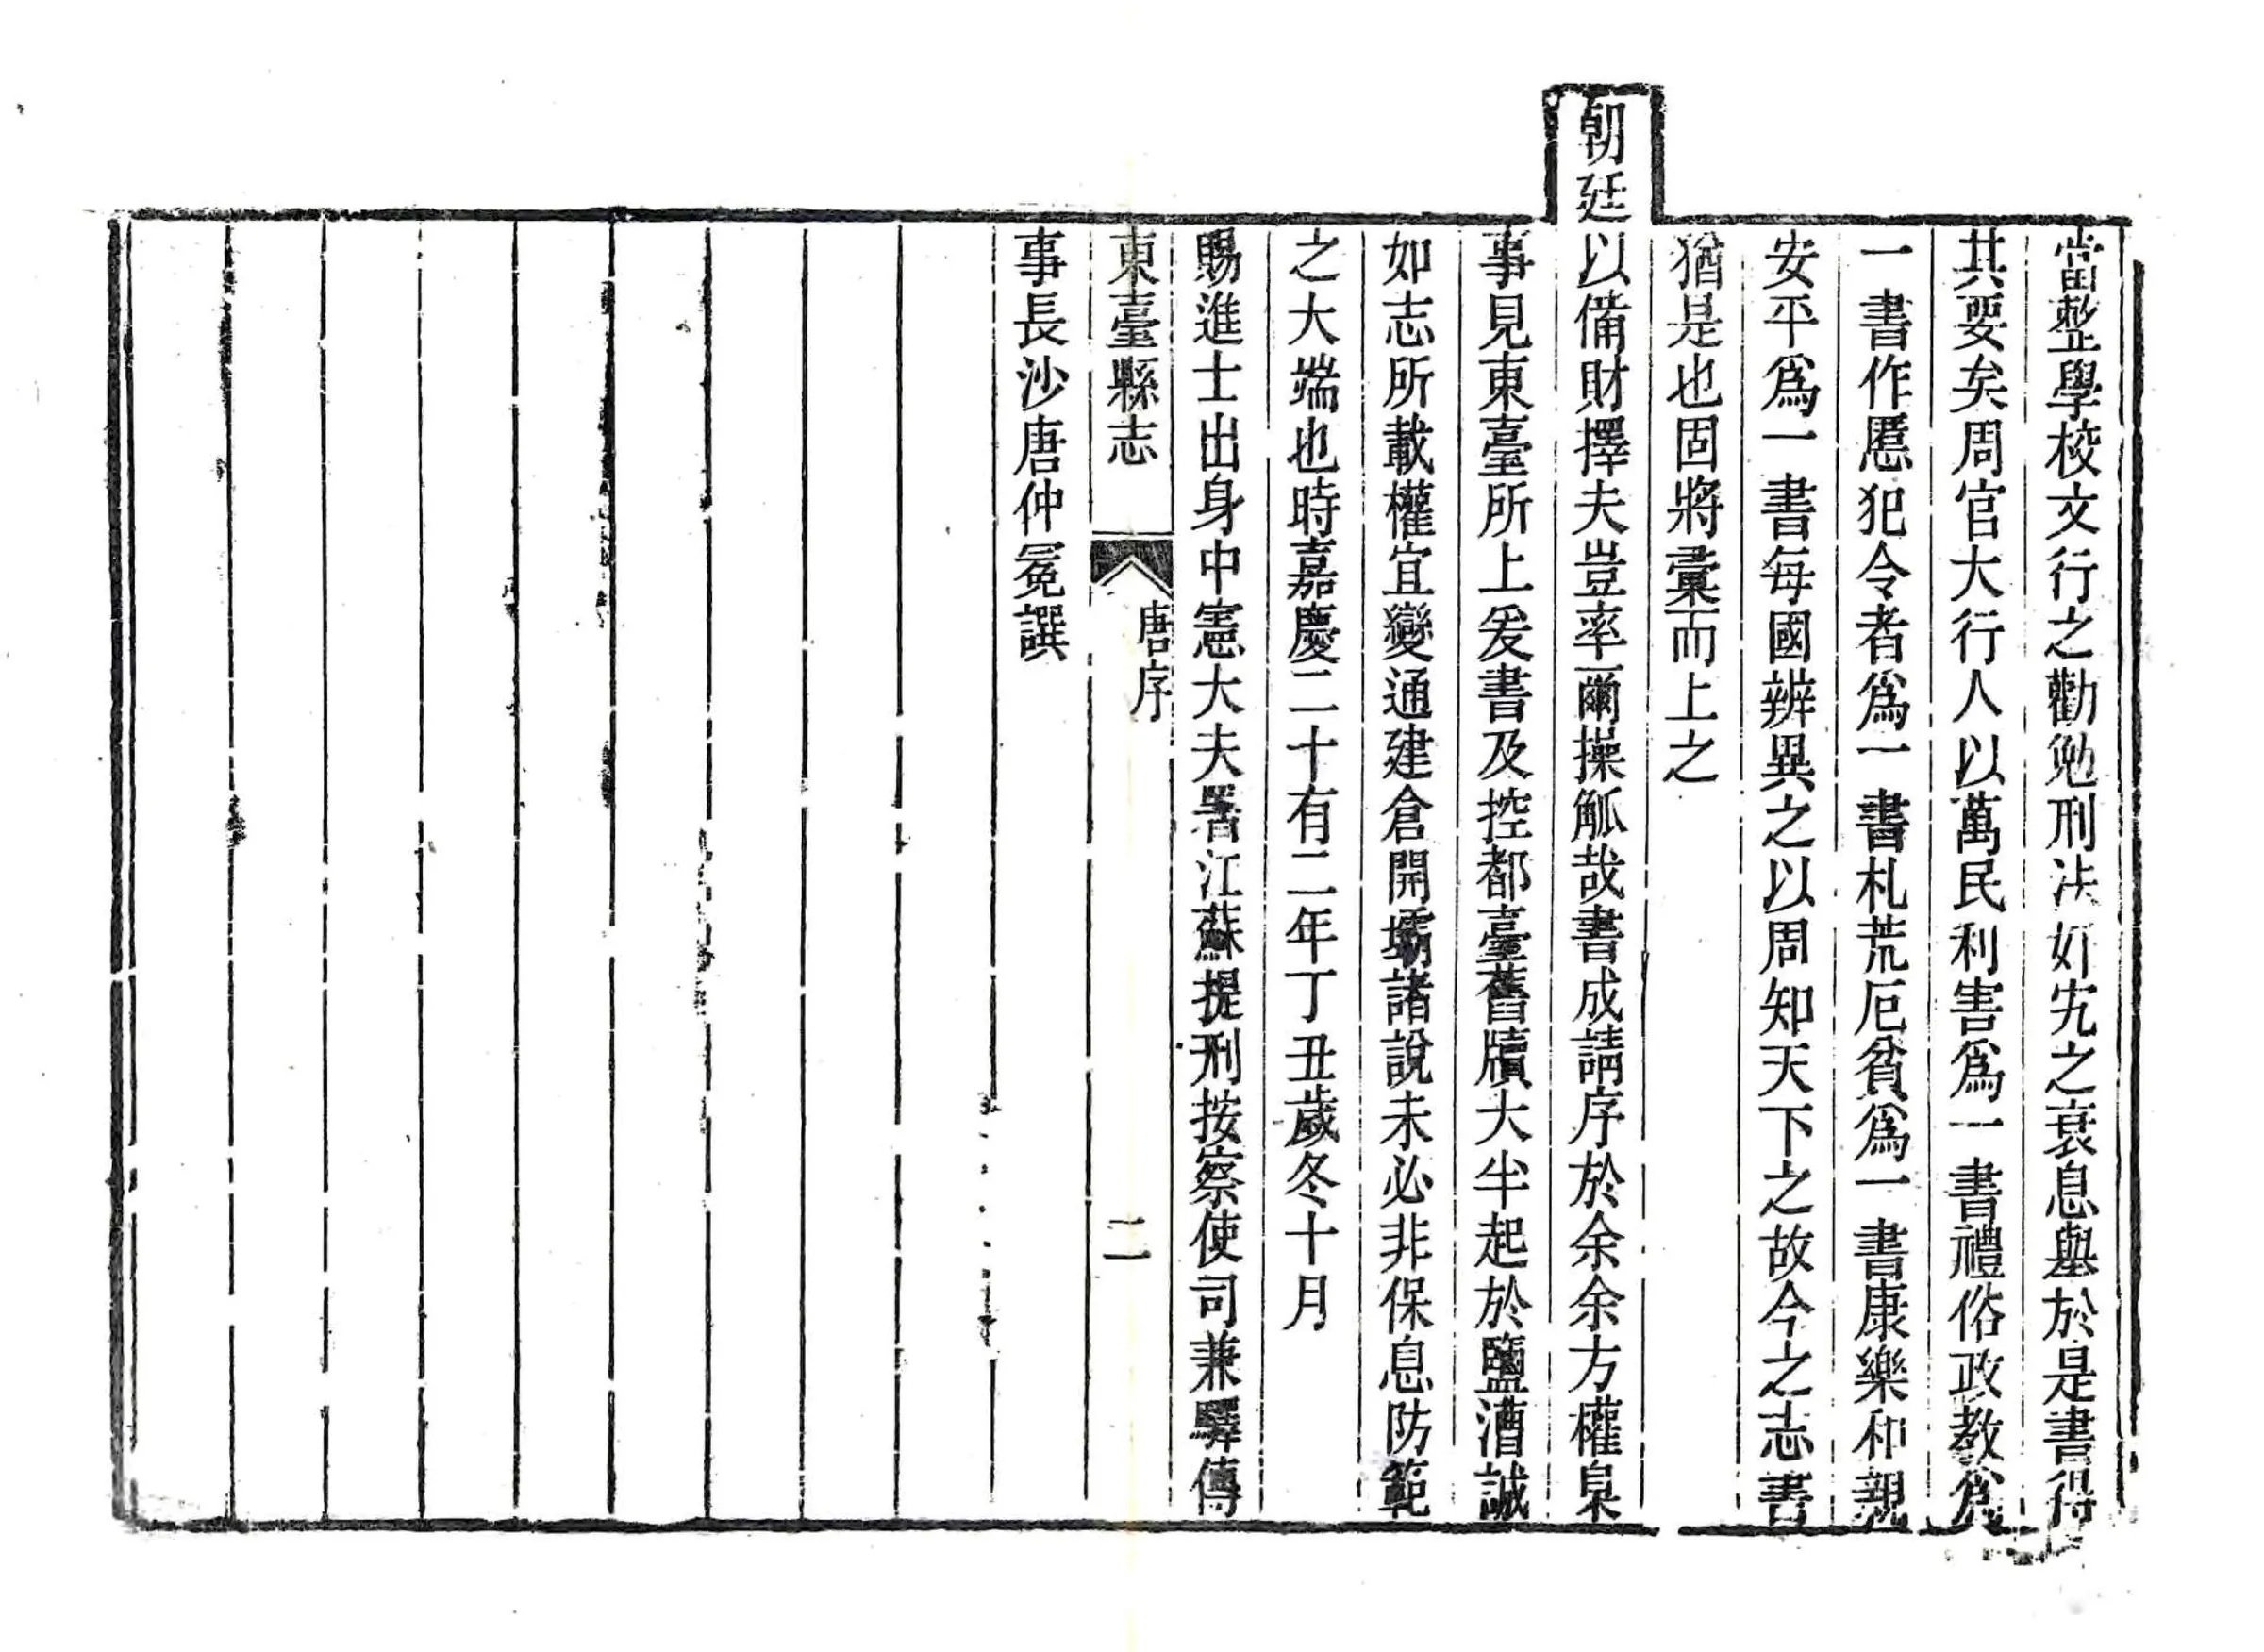 當整學校文行之勸勉刑法奸宄之衰息舉於是書得
其要矣周官大行人以萬民利害爲一書禮俗政教爲
一書作慝犯令者爲一書札荒厄貧爲一書康樂和親
安平爲一書每國辨異之以周知天下之故今之志書
猶是也固將彙而上之
朝廷以備財擇夫豈率爾操觚哉書成請序於余余方權臬
事見東臺所上爰書及控都臺舊牘大半起於鹽漕誠
如志所載權宜變通建倉開壩諸說未必非保息防範
之大端也時嘉慶二十有二年丁丑歲冬十月
賜進士出身中憲大夫署江蘇提刑按察使司兼驛傳
東臺縣志
唐序
二
事長沙唐仲冕譔